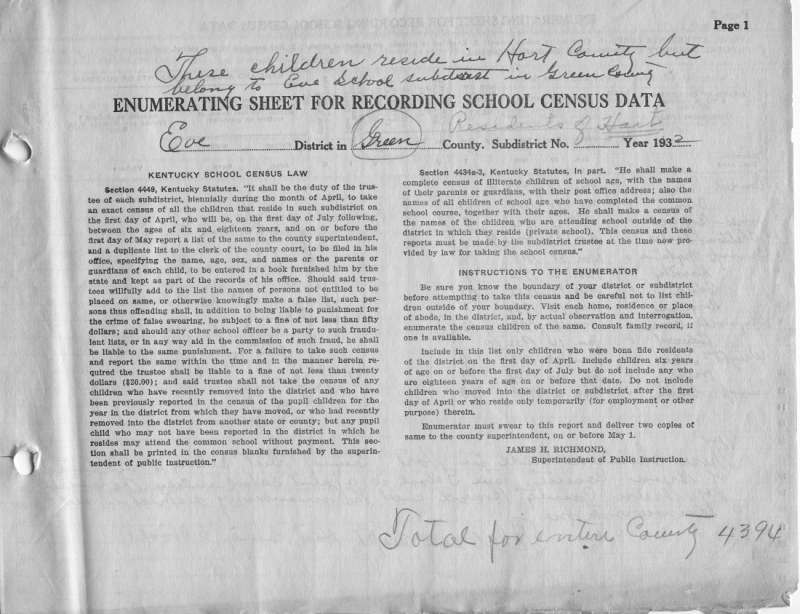 Page 1
These children reside in Hart County but
belong to Eve School subdist in Green County
ENUMERATING SHEET FOR RECORDING SCHOOL CENSUS DATA
Residents of Hart
Eve District in Green County. Subdistrict No. Year 1932
KENTUCKY SCHOOL CENSUS LAW
Section 4449, Kentucky Statutes. "It shall be the duty of the trus-
tee of each subdistrict, biennially during the month of April, to take
an exact census of all the children that reside in such subdistrict on
the first day of April, who will be, on the first day of July following,
between the ages of six and eighteen years, and on or before the
first day of May report a list of the same to the county superintendent,
and a duplicate list to the clerk of the county court, to be filed in his
office, specifying the name, age, sex, and names or the parents or
guardians of each child, to be entered in a book furnished him by the
state and kept as part of the records of his office. Should said trus-
tees willfully add to the list the names of persons not entitled to be
placed on same, or otherwise knowingly make a false list, such per-
sons thus offending shall, in addition to being liable to punishment for
the crime of false swearing, be subject to a fine of not less than fifty
dollars; and should any other school officer be a party to such fraudu-
lent lists, or in any way aid in the commission of such fraud, he shall
be liable to the same punishment. For a failure to take such census
and report the same within the time and in the manner herein re-
quired the trustee shall be liable to a fine of not less than twenty
dollars ($20.00); and said trustee shall not take the census of any
children who have recently removed into the district and who have
been previously reported in the census of the pupil children for the
year in the district from which they have moved, or who had recently
removed into the district from another state or county; but any pupil
child who may not have been reported in the district in which he
resides may attend the common school without payment. This sec-
tion shall be printed in the census blanks furnished by the superin-
tendent of public instruction."
Section 4434a-3, Kentucky Statutes, in part. "He shall make a
complete census of illiterate children of school age, with the names
of their parents or guardians, with their post office address; also the
names of all children of school age who have completed the common
school course, together with their ages. He shall make a census of
the names of the children who are attending school outside of the
district in which they reside (private school). This census and these
reports must be made by the subdistrict trustee at the time now pro-
vided by law for taking the school census."
INSTRUCTIONS TO THE ENUMERATOR
Be sure you know the boundary of your district or subdistrict
before attempting to take this census and be careful not to list chil-
dren outside of your boundary. Visit each home, residence or place
of abode, in the district, and, by actual observation and interrogation,
enumerate the census children of the same. Consult family record, if
one is available.
Include in this list only children who were bona fide residents
of the district on the first day of April. Include children six years
of age on or before the first day of July but do not include any who
are eighteen years of age on or before that date. Do not include
children who moved into the district or subdistrict after the first
day of April or who reside only temporarily (for employment or other
purpose) therein.
Enumerator must swear to this report and deliver two copies of
same to the county superintendent, on or before May 1.
JAMES H. RICHMOND,
Superintendent of Public Instruction.
Total for entire County 4394